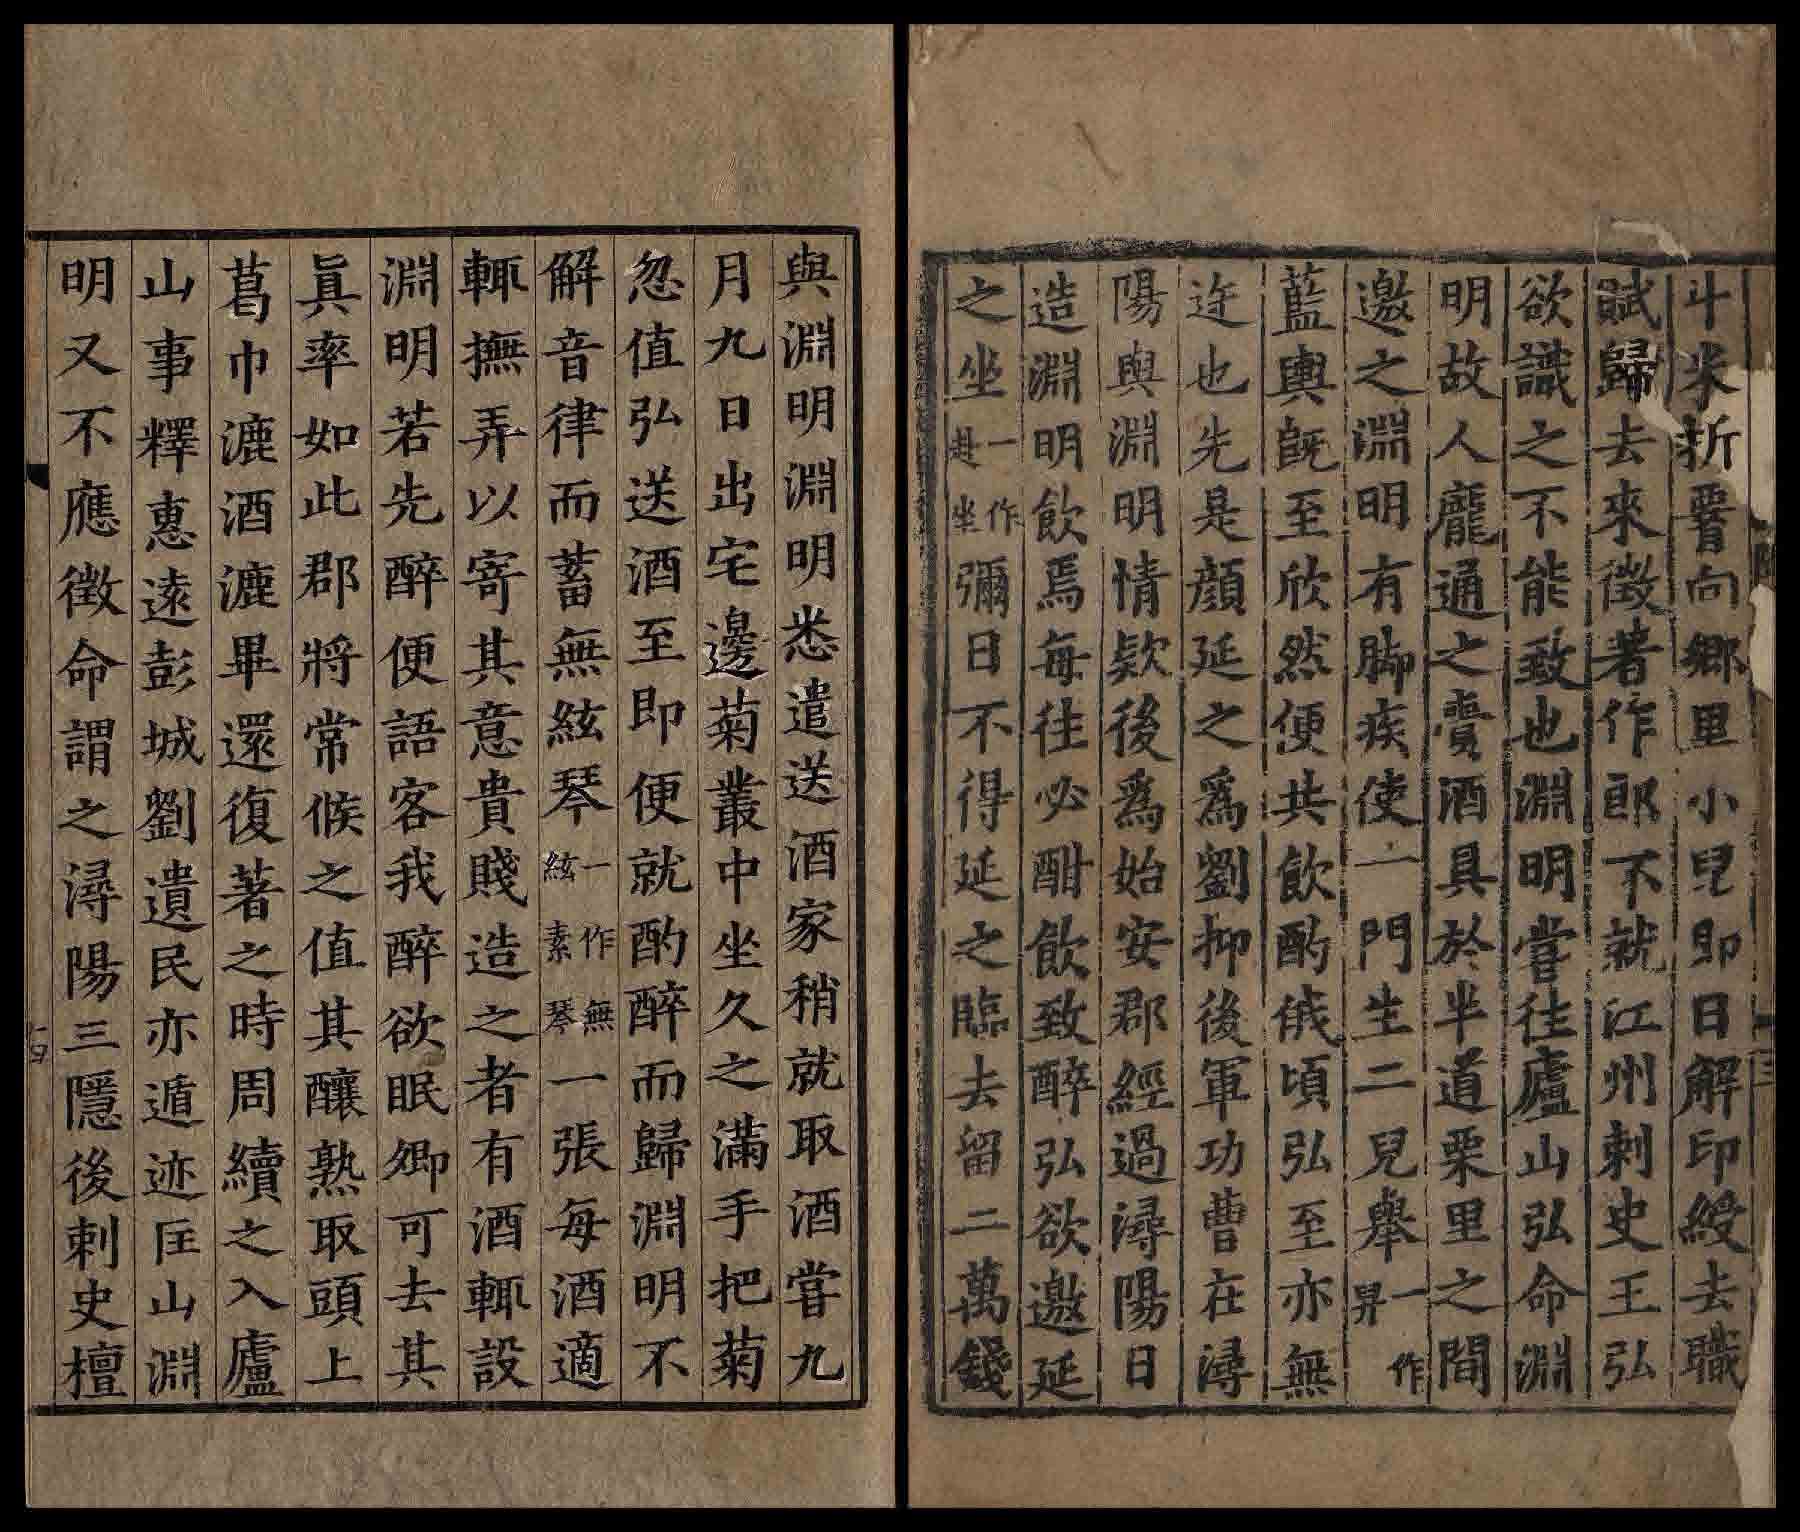 斗米折𦝫向鄉里小兒即日解印綬去職
賦歸去來徵著作郎不就江州刺史王弘
欲識之不能致也淵明嘗往廬山弘命淵
明故人龐通之賫酒具於半道栗里之間
邀之淵明有脚疾使一門生二兒舉一作舁
藍輿旣至欣然便共飲酌俄頃弘至亦無
迕也先是顔延之爲劉抑後軍功曹在潯
陽與淵明情欵後爲始安郡經過潯陽日
造淵明飲焉每往必酣飲致醉弘欲邀延
之坐一作赴坐彌日不得延之臨去留二萬錢
與淵明淵明悉遣送酒家稍就取酒嘗九
月九日出宅邊菊叢中坐久之滿手把菊
忽值弘送酒至即便就酌醉而歸淵明不
解音律而蓄無絃琴一作無絃素琴一張每酒適
輒撫弄以寄其意貴賤造之者有酒輒設
淵明若先醉便語客我醉欲眠卿可去其
眞率如此郡將常候之值其釀熟取頭上
葛巾漉酒漉畢還復著之時周續之入廬
山事釋惠遠彭城劉遺民亦遁迹匡山淵
明又不應徵命謂之潯陽三隱後刺史檀